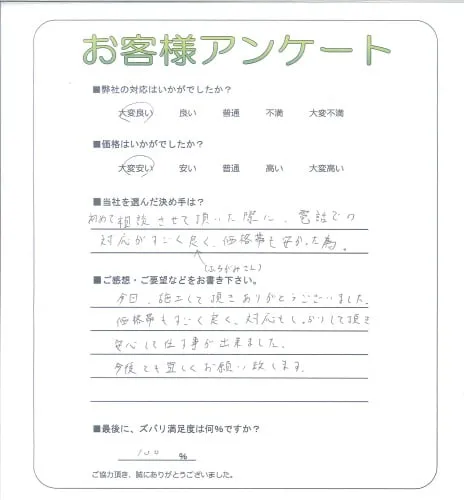 お客様アンケート
■弊社の対応はいかがでしたか？
大変良い 良い 普通 不満 大変不満
■価格はいかがでしたか？
大変安い 安い 普通 高い 大変高い
■当社を選んだ決め手は？
初めて相談させて頂いた際に、電話での
対応がすごく良く、価格帯も安かった為。
(ふちがみさん)
■ご感想・ご要望などをお書き下さい。
今日、施工して頂きありがとうございました。
価格帯もすごく良く、対応もしっかりして頂き
安心して任す事が出来ました。
今後とも宜しくお願い致します。
■最後に、ズバリ満足度は何％ですか？
100 ％
ご協力頂き、誠にありがとうございました。